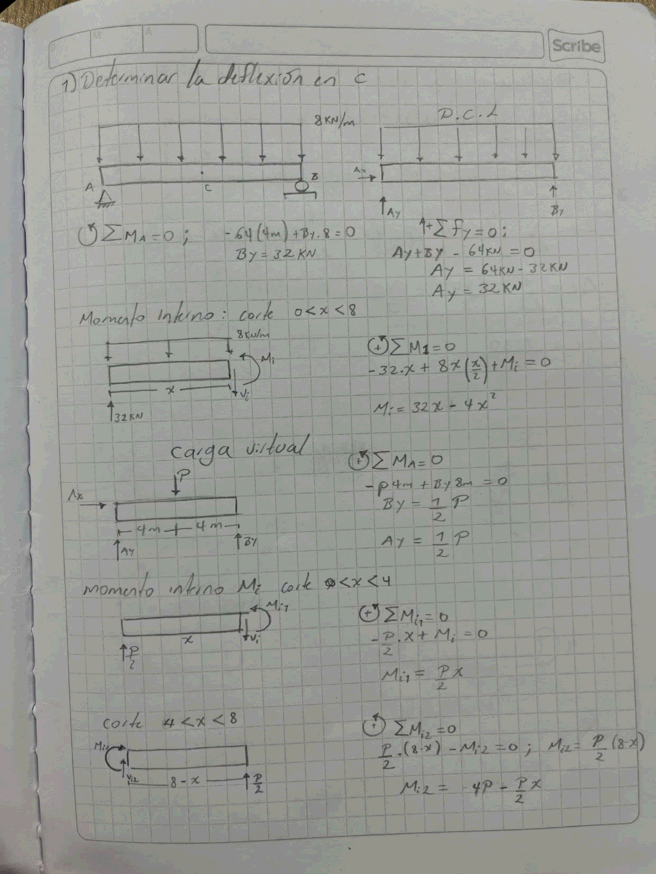 P. M A
Scribe
1) Determinar la deflexión en C
8 KN/m
D.C.L
A C B
Ax
Ay By
↺ ΣMA=0 ; -64(4m)+By.8=0
By=32KN
↑+Σfy=0:
Ay+By-64KN=0
Ay=64KN-32KN
Ay=32KN
Momento interno: corte 0<x<8
8KN/m
Mi
x Vi
32KN
ΣM1=0
-32.x+8x(x/2)+Mi=0
Mi=32x-4x²
carga virtual
P
Ax
4m 4m
Ay By
ΣMA=0
-P4m+By8m=0
By=1/2 P
Ay=1/2 P
momento interno Mi corte 0<x<4
Mi1
x Vi
P/2
ΣMi1=0
-P/2.x+Mi=0
Mi1=P/2 x
corte 4<x<8
Mi2
Vi2 8-x P/2
ΣMi2=0
P/2.(8-x)-Mi2=0; Mi2=P/2(8-x)
Mi2= 4P-P/2 x